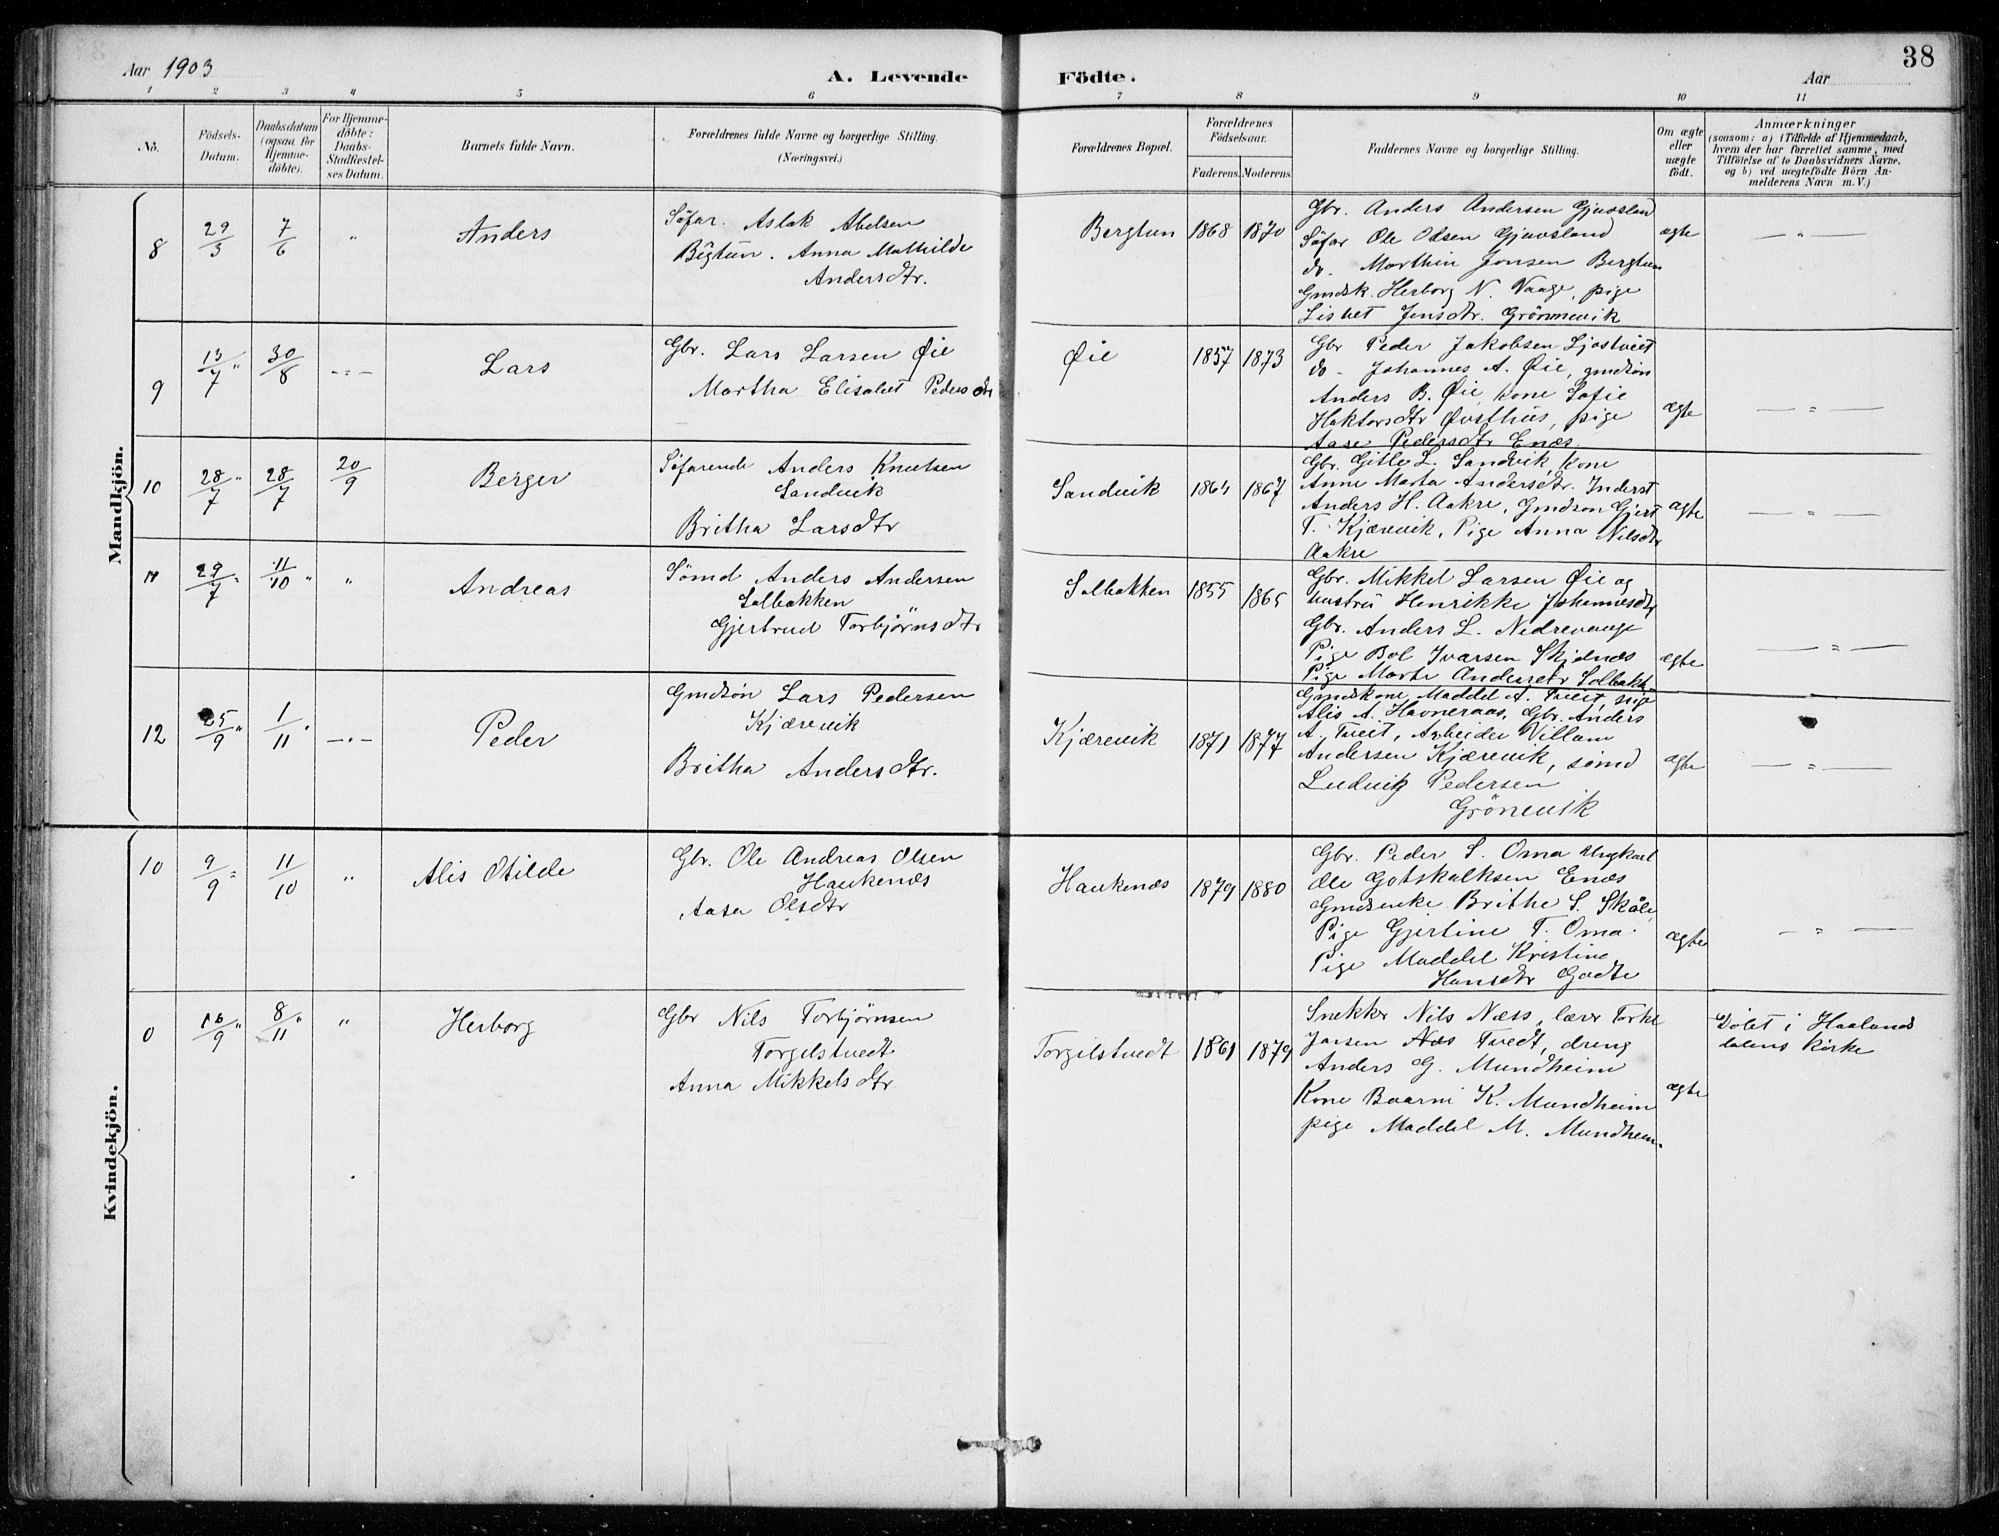 Aar 1903
A. Levende
Fødte.
Aar
38
1 2 3 4 5 6 7 8 9 10 11
No.
Födsels-Datum.
Daabsdatum (ogsaa for Hjemme-döbte).
For Hjemme-döbte: Daabs-Stadfæstel-ses Datum.
Barnets fulde Navn.
Forældrenes fulde Navne og borgerlige Stilling. (Næringsvei.)
Forældrenes Bopæl.
Forældrenes Födselsaar.
Faderens. Moderens.
Faddernes Navne og borgerlige Stilling.
Om ægte eller uægte födt.
Anmærkninger
(saasom: a) i Tilfælde af Hjemmedaab, hvem der har forrettet samme, med Tilföielse af to Daabsvidners Navne, og b) ved uægtefödte Börn An-melderens Navn m. V.)
Mandkjön.
8 29/3 7/6 " Anders
Søfar. Aslak Abelsen
Bergtun. Anna Mathilde
Andersdtr.
Bergtun 1868 1870
Gbr. Anders Andersen Gjavsland
Søfar Ole Olsen Gjavsland
do. Marthin Jensen Bergtun
Gmdsk. Herborg N. Vaage, pige
Lisbet Jensdtr. Grönnevik
ægte — " —
9 13/7 " 30/8 — " — Lars
Gbr. Lars Larsen Øie
Martha Elisabet Pedersdtr
Øie 1857 1873
Gbr Peder Jakobsen Ljostveit
do - Johannes A. Øie, gmdsøn
Anders B. Øie, kone Sofie
Haktorsdtr Østhus, pige
Aase Pedersdtr Enæs.
ægte — " —
10 28/7 " 28/7 20/9 Berger
Søfarende Anders Knutsen
Sandvik
Britha Larsdtr
Sandvik 1864 1867
Gbr. Gitle L. Sandvik, kone
Anne Marta Andersdtr. Inderst
Anders H. Aakre, Gmdsøn Gjert
T. Kjærevik, Pige Anna Nilsdtr
Aakre
ægte — " —
11 29/7 " 11/10 " " Andreas
Sømd Anders Andersen
Solbakken
Gjertrud Torbjørnsdtr
Solbakken 1855 1865
Gbr. Mikkel Larsen Øie og
hustru Henrikke Johannesdtr
Gbr. Anders L. Nedrevaage
Pige Bol Ivarsen Skjelnes
Pige Marte Andersdtr Solbakk
ægte — " —
12 25/9 " 1/11 " — " — Peder
Gmdsøn Lars Pedersen
Kjærevik
Britha Andersdtr.
Kjærevik 1871 1877
Gmdskone Maddel A. Tveit, pige
Alis A. Havneraas, Gbr. Anders
A. Tveit, Arbeider Villam
Andersen Kjærevik, sømd
Ludvik Pedersen
Grönevik
ægte — " —
Kvindekjön.
10 9/9 " 11/10 " Alis Otilde
Gbr. Ole Andreas Olsen
Haukenæs
Aasa Olsdtr
Haukenæs 1879 1880
Gbr. Peder S. Oma Ungkarl
Ole Gotskalksen Enæs
Gmdsenke Brithe S. Skåle,
Pige Gjertine T. Oma.
Pige Maddel Kristine
Hansdtr Godte
ægte — " —
0 16/9 " 8/11 " " Herborg
Gbr Nils Torbjørnsen
Torgilstvedt
Anna Mikkelsdtr
Torgilstvedt 1861 1879
Snekker Nils Næss, lærer Torkel
Jarsen Næs Tvedt, dreng
Anders G. Mundheim
Kone Baarni K. Mundheim
pige Maddel M. Mundheim.
ægte
Døbt i Haalands
dalens kirke